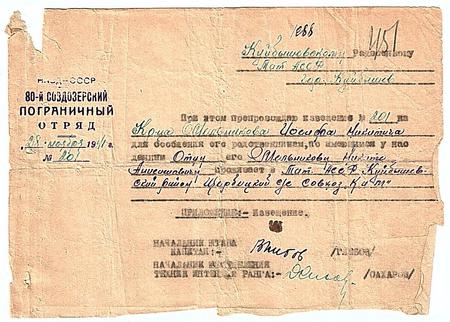 1266
Куйбышевскому Районному
451
Тат АССР
гор. Куйбышев
НКВД-СССР
80-й СОЗДОЗЕРСКИЙ
ПОГРАНИЧНЫЙ
ОТРЯД
28 ноября 1941 г.
№ 201
При этом препровождаю извещение № 201 на
Мельникова Иосифа Никитича
для сообщения его родственникам, по имеющимся у нас
данным Отец его Мельников Никита
проживает в Тат. АССР Куйбышев-
ский район с/с совхоз
ПРИЛОЖЕНИЕ:- Извещение.
НАЧАЛЬНИК ШТАБА
КАПИТАН:- /ГЛЕБОВ/
НАЧАЛЬНИК ОТДЕЛЕНИЯ
ТЕХНИК ИНТЕНД РАНГА:- /САХАРОВ/